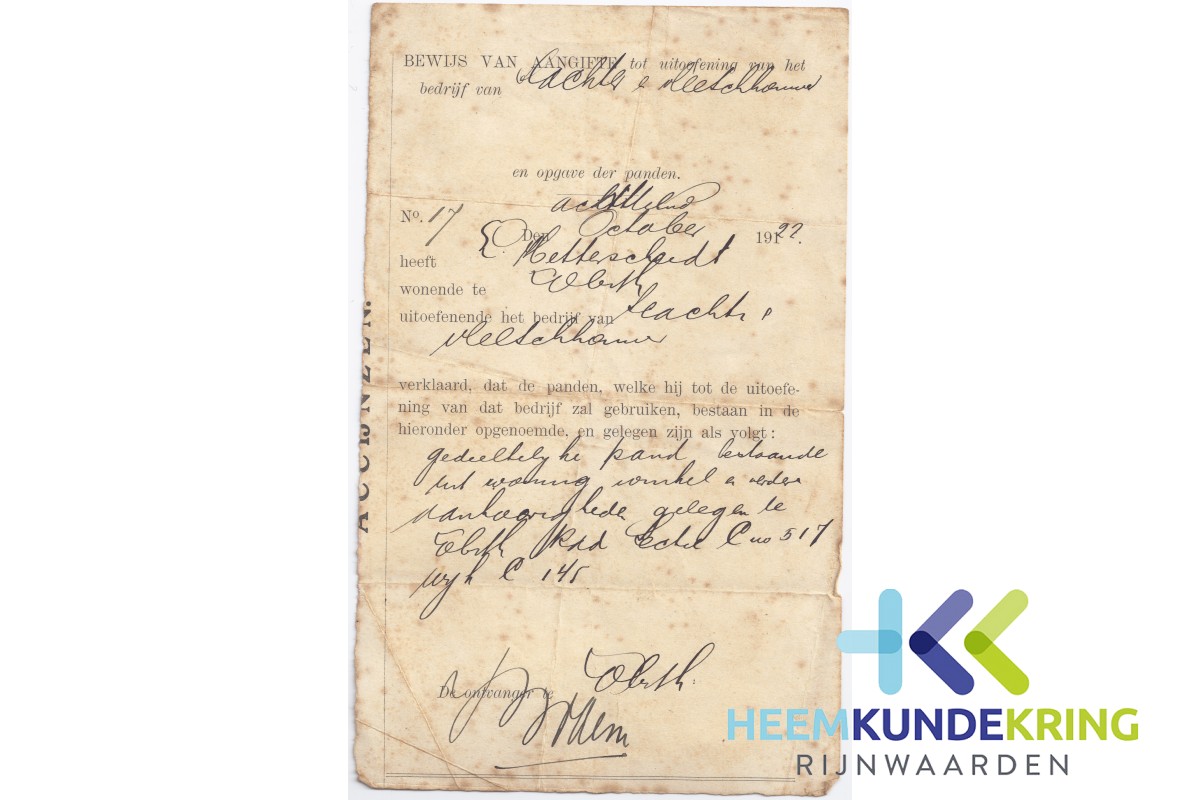 BEWIJS VAN AANGIFTE tot uitoefening van het
bedrijf van slachter & vleeschhouwer
en opgave der panden.
No. 17
achttiend
Den October 1922.
heeft E. Hetterscheidt
wonende te Tolk
uitoefenende het bedrijf van slachter &
vleeschhouwer
verklaard, dat de panden, welke hij tot de uitoefe-
ning van dat bedrijf zal gebruiken, bestaan in de
hieronder opgenoemde, en gelegen zijn als volgt:
gedeeltelijke pand bestaande
uit woning winkel en verdere
aanhoorigheden gelegen te
Kad Sectie C no 517
wijk C 145
De ontvanger te
ACCIJNZEN.
HEEMKUNDEKRING
RIJNWAARDEN